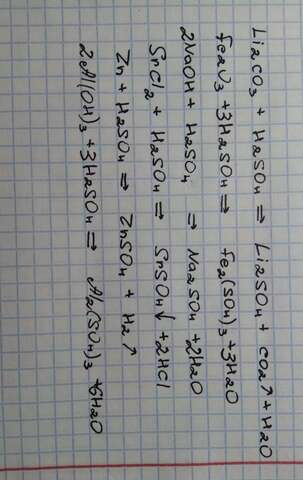 Li2CO3 + H2SO4 ⇒ Li2SO4 + CO2↑ + H2O
Fe2O3 + 3H2SO4 ⇒ Fe2(SO4)3 + 3H2O
2NaOH + H2SO4 ⇒ Na2SO4 + 2H2O
SrCl2 + H2SO4 ⇒ SrSO4↓ + 2HCl
Zn + H2SO4 ⇒ ZnSO4 + H2↑
2Al(OH)3 + 3H2SO4 ⇒ Al2(SO4)3 + 6H2O